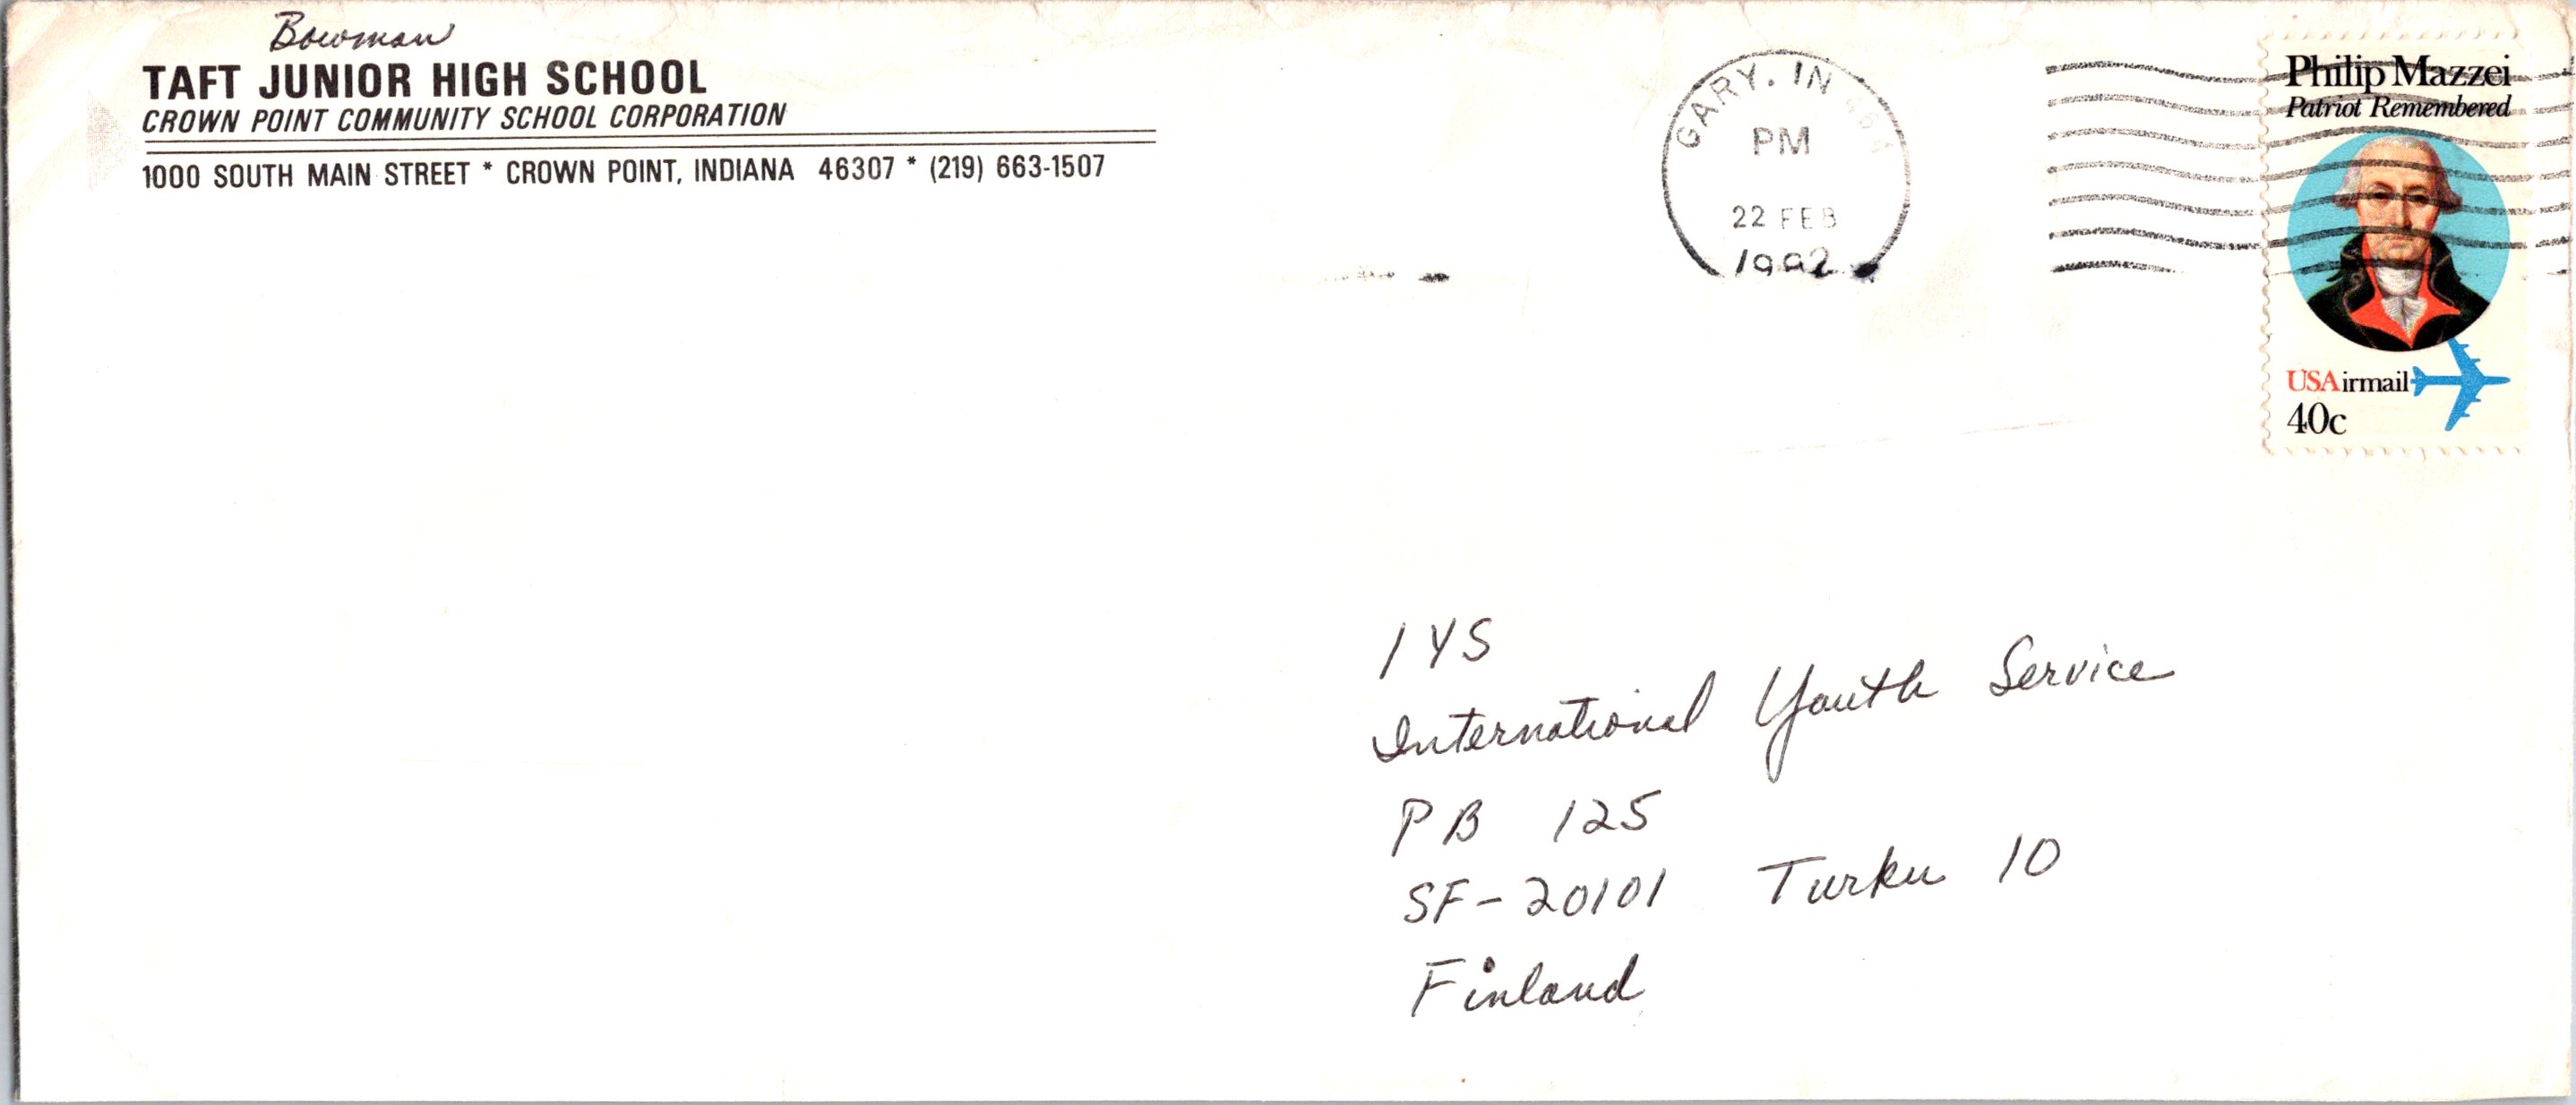 Bowman
TAFT JUNIOR HIGH SCHOOL
CROWN POINT COMMUNITY SCHOOL CORPORATION
1000 SOUTH MAIN STREET * CROWN POINT, INDIANA 46307 * (219) 663-1507
GARY, IN
PM
22 FEB
1992
Philip Mazzei
Patriot Remembered
USAirmail
40c
IYS
International Youth Service
PB 125
SF-20101 Turku 10
Finland